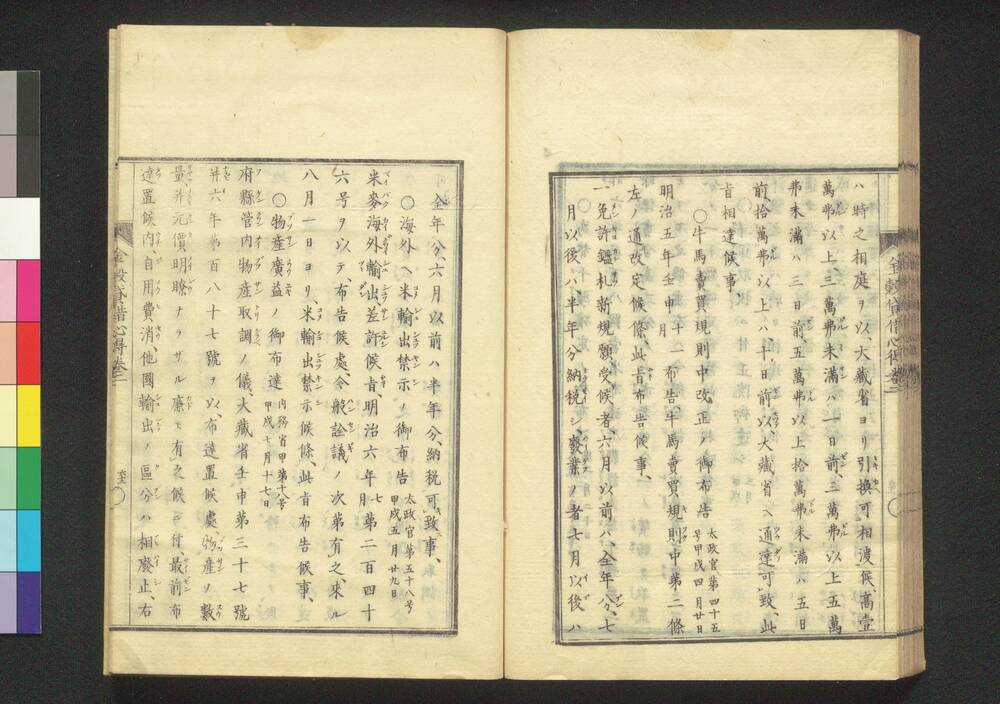 ハ時之相庭ヲ以、大藏省ヨリ引換可相渡候高壹
萬弗以上三萬弗未滿ハ一日前、三萬弗以上五萬
弗未滿ハ三日前、五萬弗以上拾萬弗未滿ハ五日
前拾萬弗以上ハ十日前以、大藏省ヘ通達可致、此
旨相達候事
〇牛馬賣買規則中改正ノ御布告 太政官第四十五
号甲戌四月廿日
明治五年壬申月十一布告牛馬賣買規則中第二條
左ノ通改定候條、此旨布告候事、
一免許鑑札新規願受候者、六月以前ハ、全年分、七
月以後ハ半年分納税シ、發業ノ者七月以後ハ
金穀貸借心得卷二
全年分、六月以前ハ半年分、納税可致事、
〇海外ヘ米輸出禁示ノ御布告 太政官第五十八号
甲戌五月廿九日
米麥海外輸出差許候旨、明治六年七月第二百四十
六号ヲ以テ、布告候處、令般詮議ノ次第有之、來ル
八月一日ヨリ、米輸出禁示候條、此旨布告候事、
〇物産廣益ノ御布達 内務省甲第十八号
甲戌七月十七日
府縣管内物産取調ノ儀、大藏省壬申第三十七號
并六年第百八十七號ヲ以布達置候處、物産ノ數
量、并元價明瞭ナラサル廉モ有之候ニ付、最前布
達置候内自用費消他國輸出ノ區分ハ相廢止、右
金穀貸借心得卷二